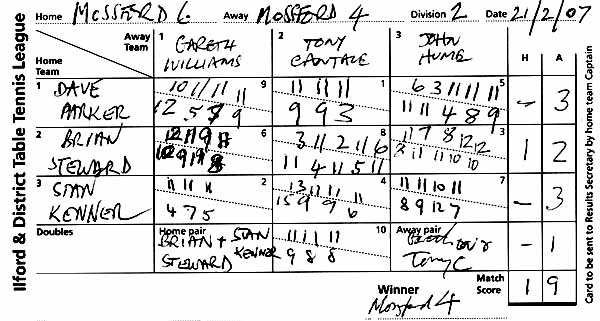 Ilford & District Table Tennis League
Home MOSSFORD 6 Away MOSSFORD 4 Division 2 Date 21/2/07
Away Team
Home Team
1 GARETH WILLIAMS
2 TONY CANTALE
3 JOHN HUME
H A
1 DAVE PARKER
9
10 11 11 11
12 5 9
1
11 11 11
9 9 3
5
6 3 11 11 11
11 11 4 8 9
- 3
2 BRIAN STEWARD
6
8
3 11 2 11 6
11 4 11 5 11
3
11 7 8 12 12
11 11 10 10
1 2
3 STAN KENNER
2
11 11 11
4 7 5
4
13 11 11 11
15 9 9 6
7
11 11 10 11
8 9 12 7
- 3
Doubles
Home pair
BRIAN + STAN
STEWARD KENNER
10
11 11 11
9 8 8
Away pair
Tony C
- 1
Winner
Mossford 4
Match Score
1 9
Card to be sent to Results Secretary by home team Captain